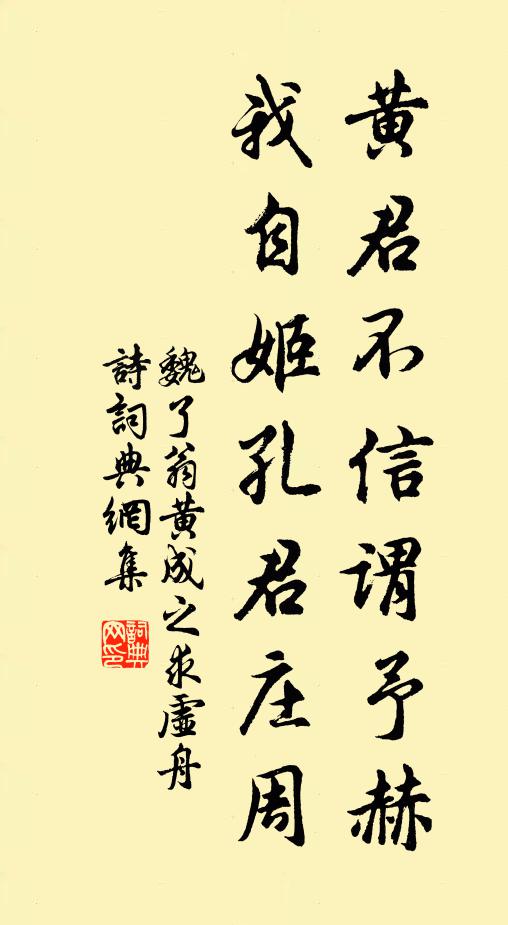 黄君不信谓予赫
我自姬孔君庄周
魏了翁黄成之求虛舟
詩詞典網集
詞典网印